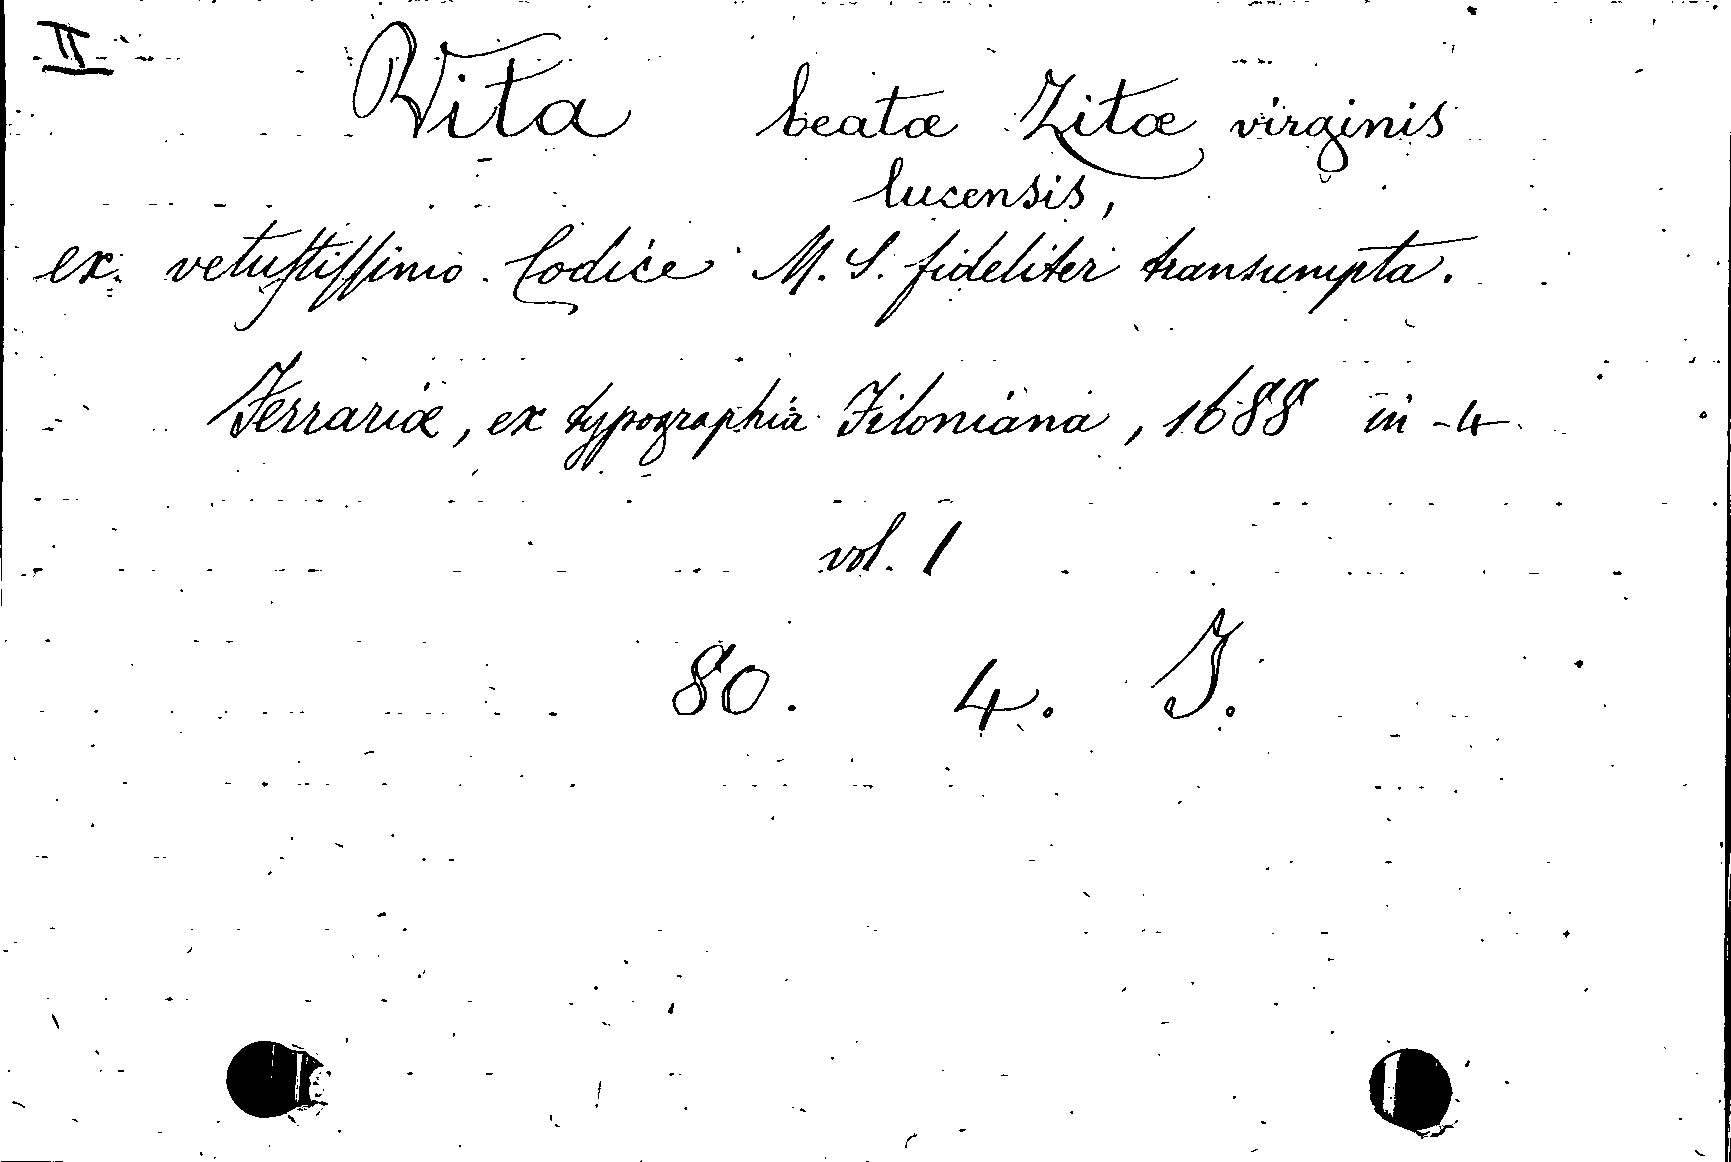 II
Vita beatæ Zitæ virginis
lucensis,
ex vetuſtiſſimo Codice M. S. fideliter transumpta.
Ferrariæ, ex typographia Filoniana, 1688 in-4
vol. 1
80. 4. J.